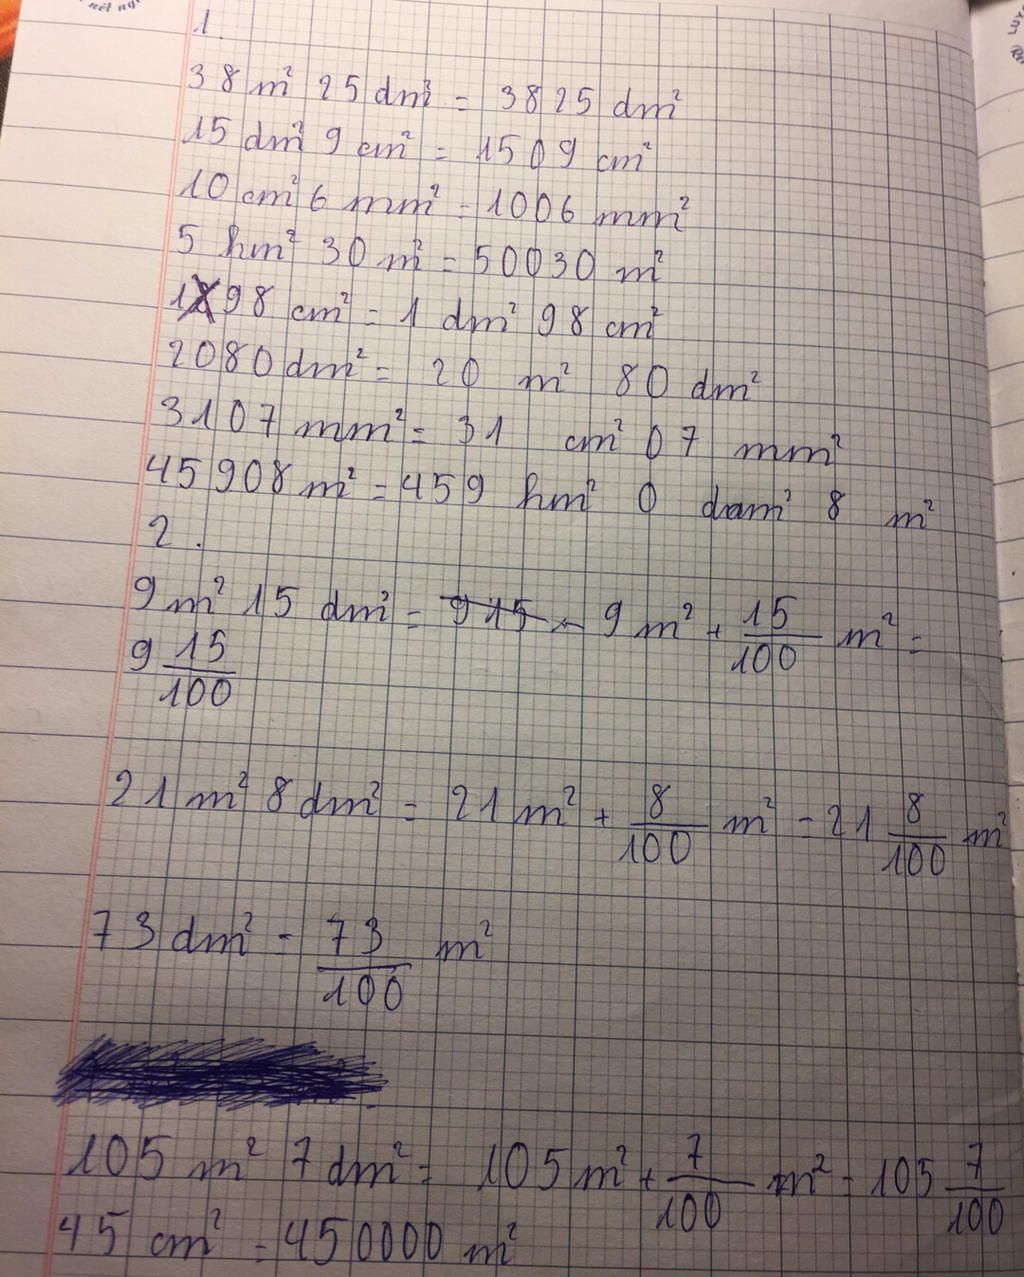 nét ng
LUY
1.
38 m² 25 dm² = 3825 dm²
15 dm² 9 cm² = 1509 cm²
10 cm² 6 mm² = 1006 mm²
5 hm² 30 m² = 50030 m²
198 cm² = 1 dm² 98 cm²
2080 dm² = 20 m² 80 dm²
3107 mm² = 31 cm² 07 mm²
45908 m² = 459 hm² 0 dam² 8 m²
2.
9 m² 15 dm² = 915 - 9 m² + 15/100 m² =
9 15/100
21 m² 8 dm² = 21 m² + 8/100 m² = 21 8/100 m²
73 dm² = 73/100 m²
105 m² 7 dm² = 105 m² + 7/100 m² = 105 7/100
45 cm² = 450000 m²